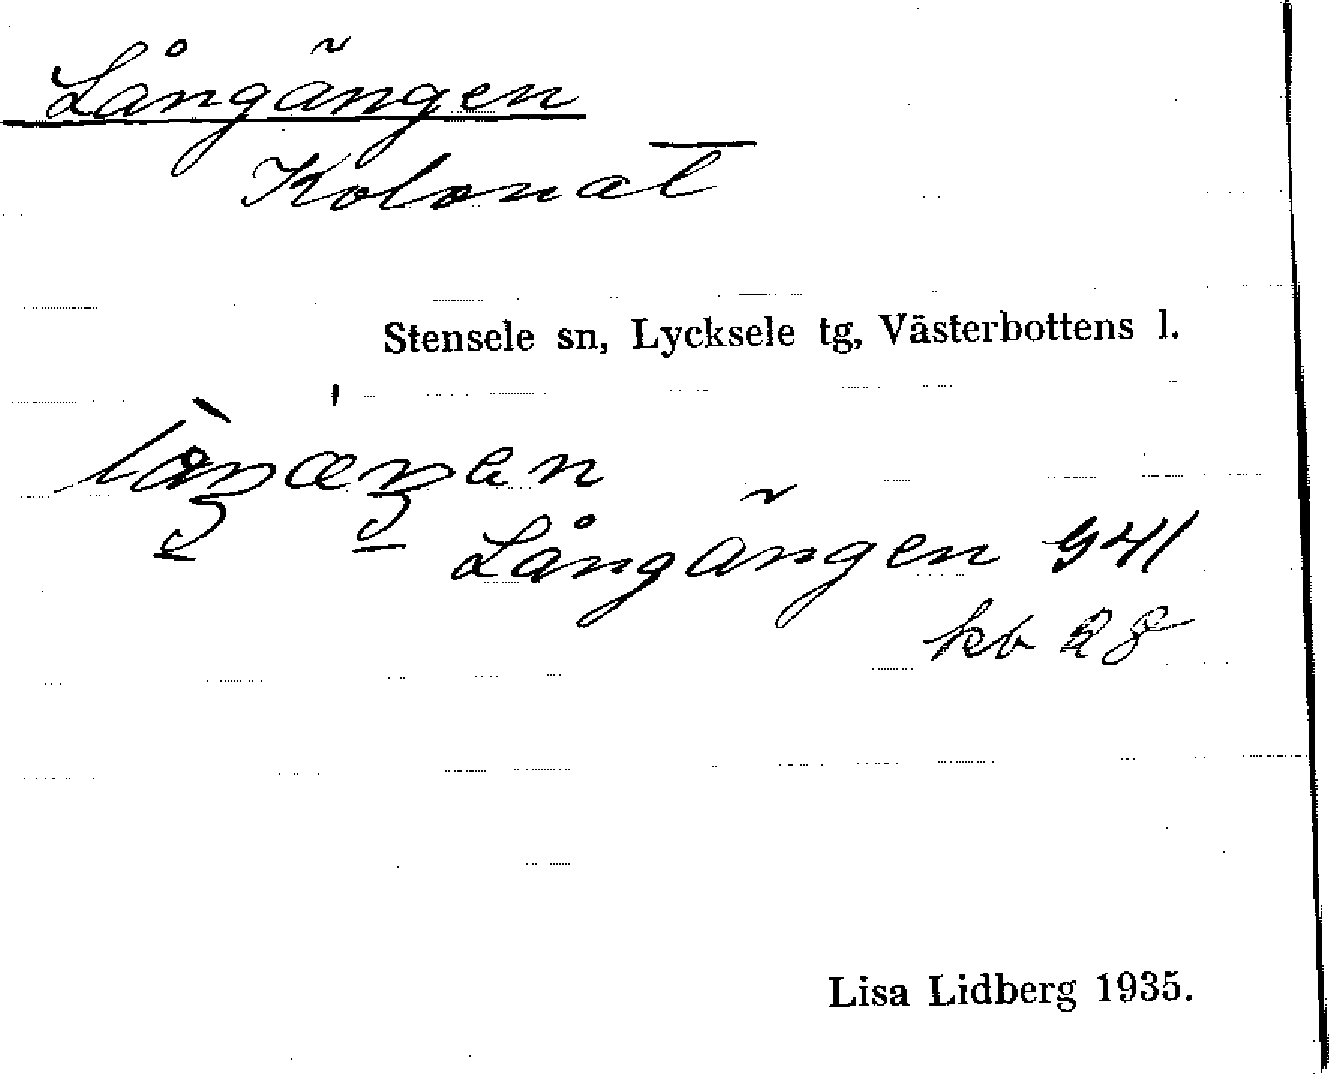 Långängen
Kolonat
Stensele sn, Lycksele tg, Västerbottens l.
Långängen G41
kb 28
Lisa Lidberg 1935.